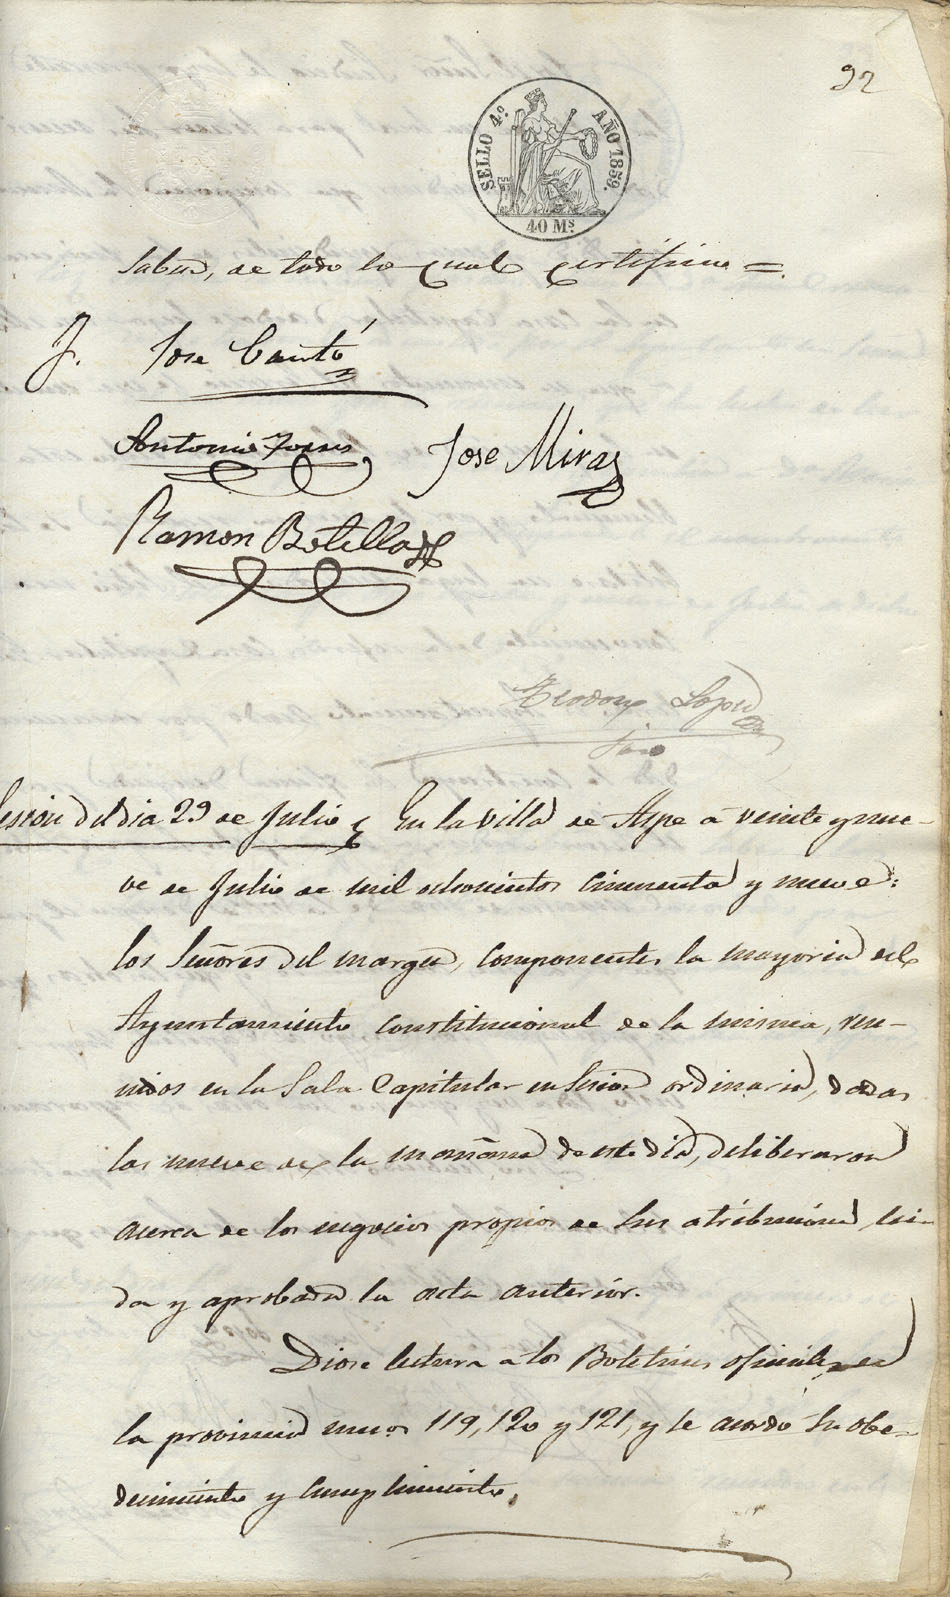 92
SELLO 4.º AÑO 1859.
40 Ms.
sabed, de todo lo cual certifico =.
José Cantó
Antonio Torres
Jose Mira
Ramon Botella
Teodoro Lopez
Srio
Sesion del dia 29 de Julio En la villa de Aspe a veinte y nue-
ve de Julio de mil ochocientos cincuenta y nueve:
los Señores del margen, componentes la mayoria del
Ayuntamiento constitucional de la misma, reu-
nidos en la Sala Capitular en Sesion ordinaria, dadas
las nueve de la mañana de este dia, deliberaron
acerca de los negocios propios de sus atribuciones, lei-
da y aprobada la acta anterior.
Diose lectura a los Boletines oficiales de
la provincia numos 119, 120 y 121, y se acordó su obe-
decimiento y cumplimiento.